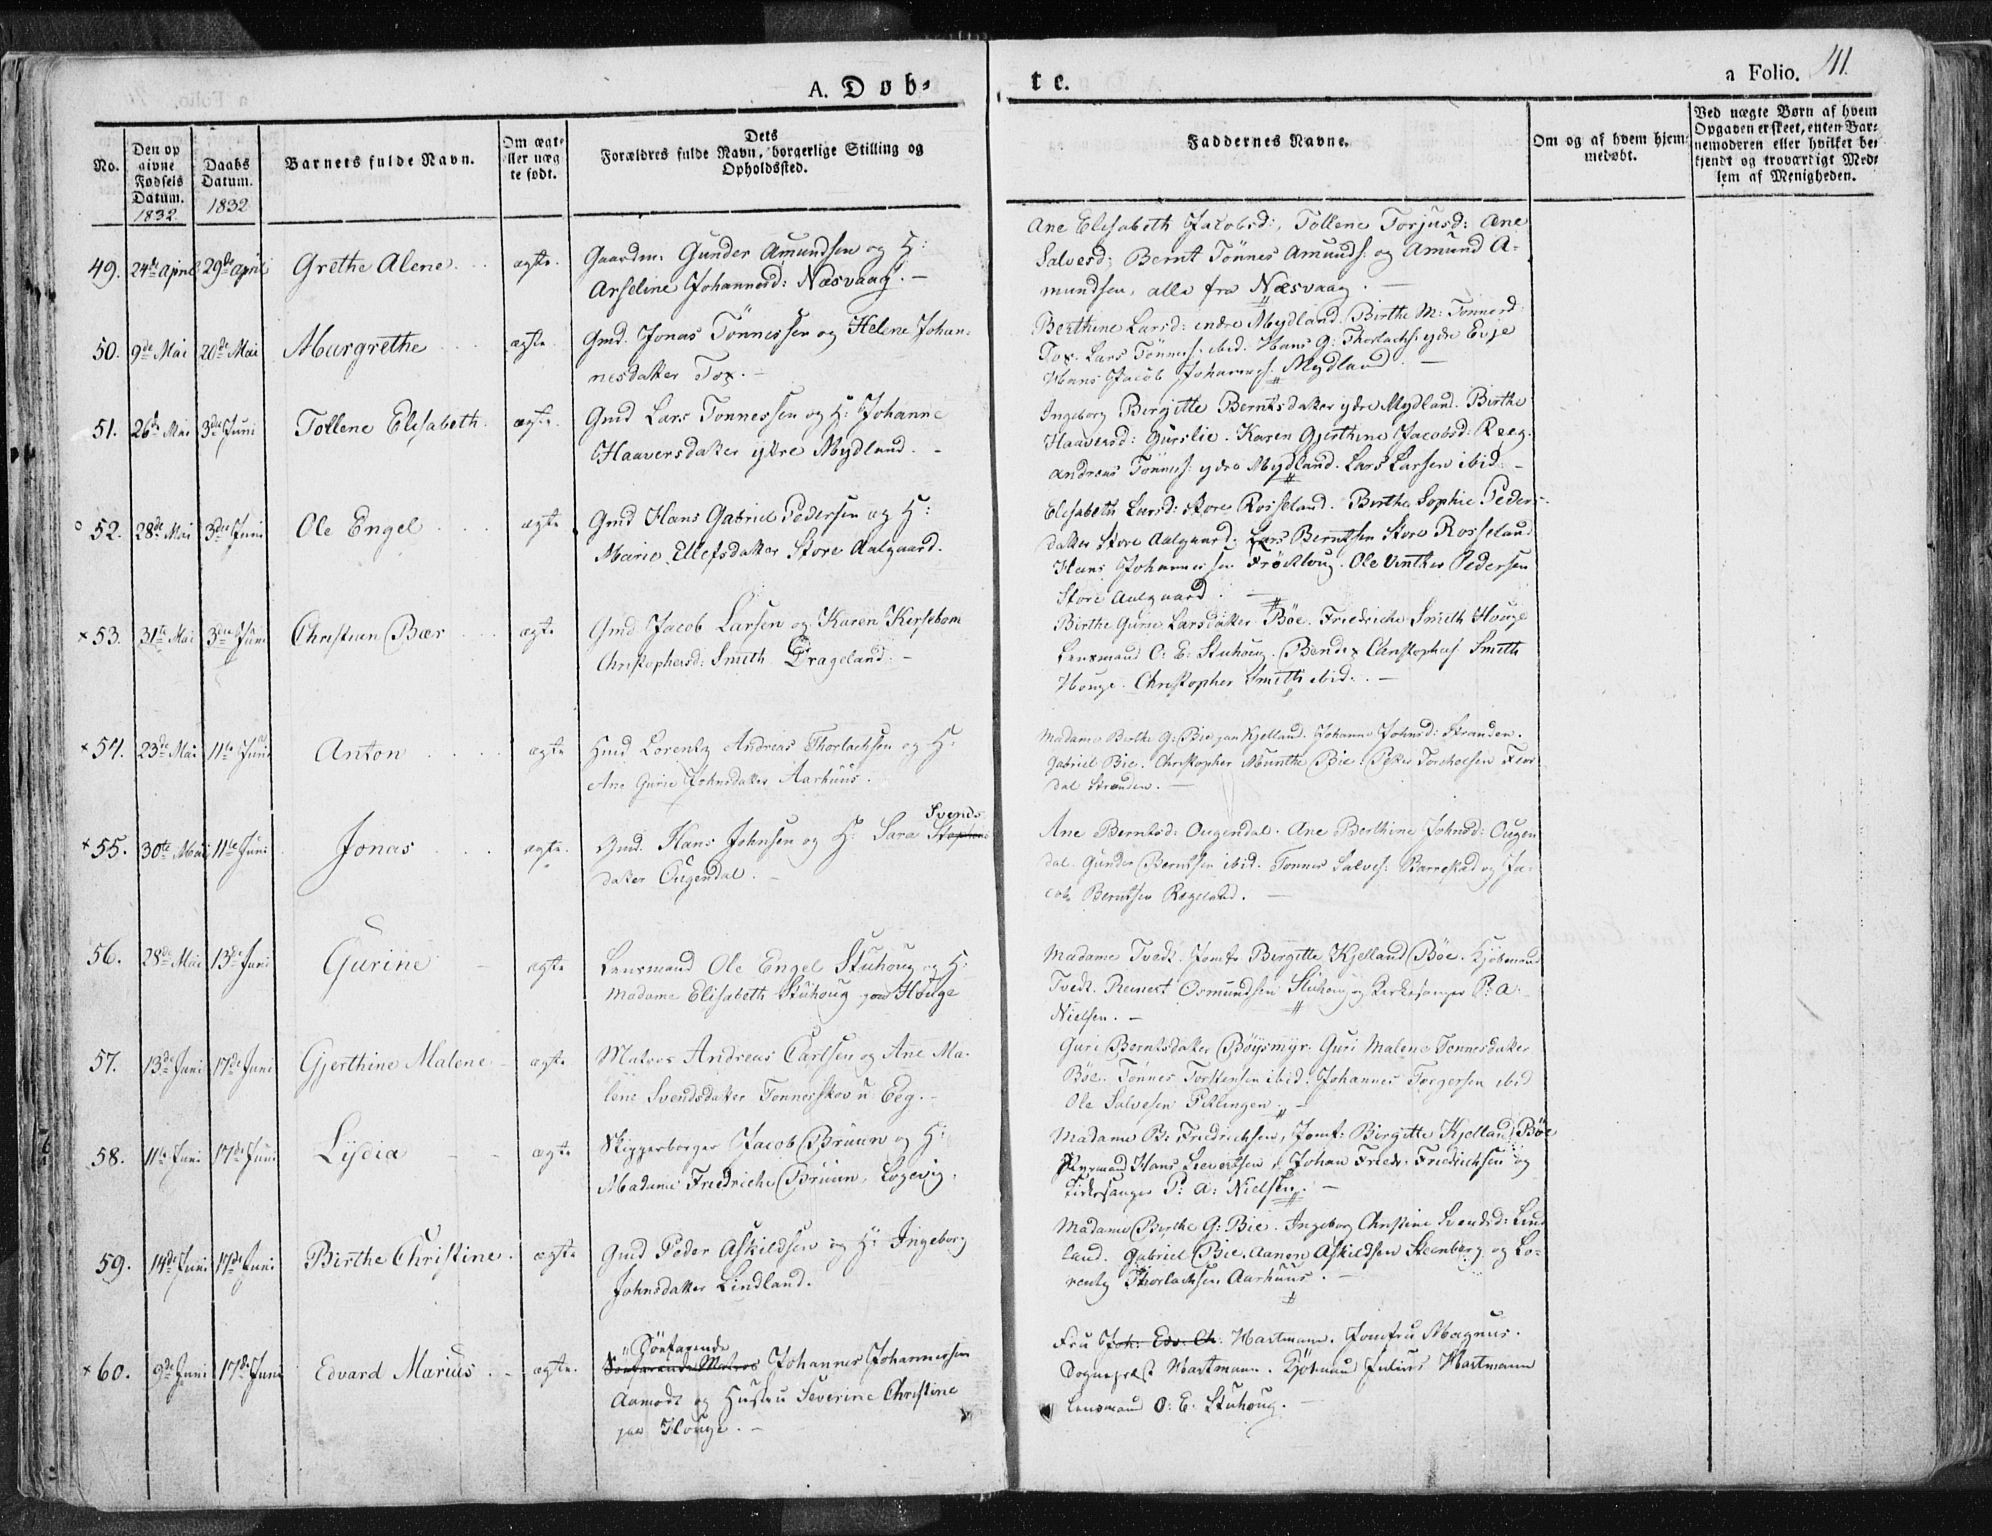 A. Døb-
te.
a Folio. 41.
No.
Den op
givne
Fødsels
Datum.
1832
Daabs
Datum.
1832
Barnets fulde Navn.
Om ægte
eller uæg
te født.
Dets
Forældres fulde Navn, borgerlige Stilling og
Opholdssted.
Faddernes Navne.
Om og af hvem hjem-
medøbt.
Ved uægte Børn af hvem
Opgaven er skeet, enten Bar-
nemoderen eller hvilket be-
kjendt og troværdigt Med-
lem af Menigheden.
49. 24de April 29de April Grethe Alene ægte.
Gaardm: Gunder Amundsen og H:
Arseline Johannesd: Næsvaag. —
Ane Elisabeth Jacobsd:, Tollene Torjusd: Ane
Salvesd: Bernt Tönnes Amunds: og Amund A-
mundsen, alle fra Næsvaag. —
50. 9de Mai 20de Mai Margrethe ægte
Gmd. Jonas Tönnessen og Helene Johan-
nesdatter Tox. —
Berthine Larsd: indre Mydland. Birthe M: Tonnesd:
Tox. Lars Tönness: ibid. Hans G: Thorlachs: ydre Evje
Hans Jacob Johanness: Mydland. —
51. 26de Mai 3die Juni Tollene Elisabeth ægte.
Gmd Lars Tonnessen og H: Johanne
Haaversdatter ydre Mydland. —
Ingeborg Birgitte Berntsdatter ydre Mydland. Birthe
Haaversd: Gurslie. Karen Gjerthine Jacobsd: Reeg.
Andreas Tönness: ydre Mydland. Lars Larsen ibid. —
52. 28de Mai 3die Juni Ole Engel ægte
Gmd Hans Gabriel Pedersen og H:
Marie Ellefsdatter Store Aalgaard.
Elisabeth Larsd: store Rosseland. Birthe Sophie Peders-
datter Store Aalgaard. Lars Berntsen Store Rosseland
Hans Johannessen Fröitloug. Ole Vinther Pedersen
Store Aalgaard. —
53. 31te Mai 3die Juni Christian Bær ægte
Gmd Jacob Larsen og Karen Kirsebom
Christophersd: Smith Drageland. —
Birthe Gurie Larsdatter Böe. Friedriche Smith Houge
Lensmand O: E: Stuhoug. Bendix Christophers: Smith
Houge. Christopher Smith ibid. —
54. 23de Mai 11te Juni Anton ægte
Hmd Lorentz Andreas Thorlachsen og H:
Ane Gurie Johnsdatter Aarhuus.
Madame Birthe G: Bie paa Kjelland. Johanne Johnsd: Stranden.
Gabriel Bie. Christopher Munthe Bie. Peder Torkelsen
dal Stranden. —
55. 30te Mai 11te Juni Jonas ægte.
Svends
Gmd. Hans Johnsen og H: Sara
datter Ougendal. —
Ane Berntsd: Ougendal. Ane Berthine Johnsd: Ougen
dal. Gunder Berntsen ibid. Tönnes Salves: Barrestad og Ja-
cob Berntsen Rægeland. —
56. 28de Mai 13de Juni Gurine ægte
Lensmand Ole Engel Stuhoug og H:
Madame Elisabeth Stuhoug paa Houge
Madame Tvedt. Jomfr: Birgitte Kjelland Böe. Kjöbmand
Tvedt. Reinert Osmundsen Stuhoug og Kirkesanger P: A:
Nielsen. —
57. 13de Juni 17de Juni Gjerthine Malene ægte
Matros Andreas Carlsen og Ane Ma-
lene Svendsdatter Tonnesskov u: Eeg. —
Guri Berntsdatter Böysmyr. Guri Malene Tonnesdatter
Böe. Tönnes Torstensen ibid. Johannes Torgersen ibid
Ole Salvesen Pitlingen. —
58. 11te Juni 17de Juni Lydia ægte
Skipperborger Jacob Bruun og H:
Madame Friedriche Bruun, Logevig.
Madame B: Friedrichsen, Jomf: Birgitte Kjelland Böe
Hans Sievertsen, Johan Friedr: Friedrichsen og
Kirkesanger P: A: Nielsen. —
59. 14de Juni 17de Juni Birthe Christine ægte
Gmd Peder Askildsen og H: Ingeborg
Johnsdatter Lindland.
Madame Birthe G: Bie. Ingeborg Christine Svendsd: Lind
land. Gabriel Bie. Aanen Askildsen Steenberg og Lo-
rentz Thorlachsen Aarhuus. —
60. 9de Juni 17de Juni Edvard Marius ægte.
Söefarende
Söefarende Matros Johannes Johannessen
Aamodt og Hustru Severine Christine
paa Houge. —
Fru Joh: Edv: Ch: Hartmann. Jomfru Magnus.
Sognepræst Hartmann. Kjöbmand Julius Hartmann
Lensmand O: E: Stuhoug. —